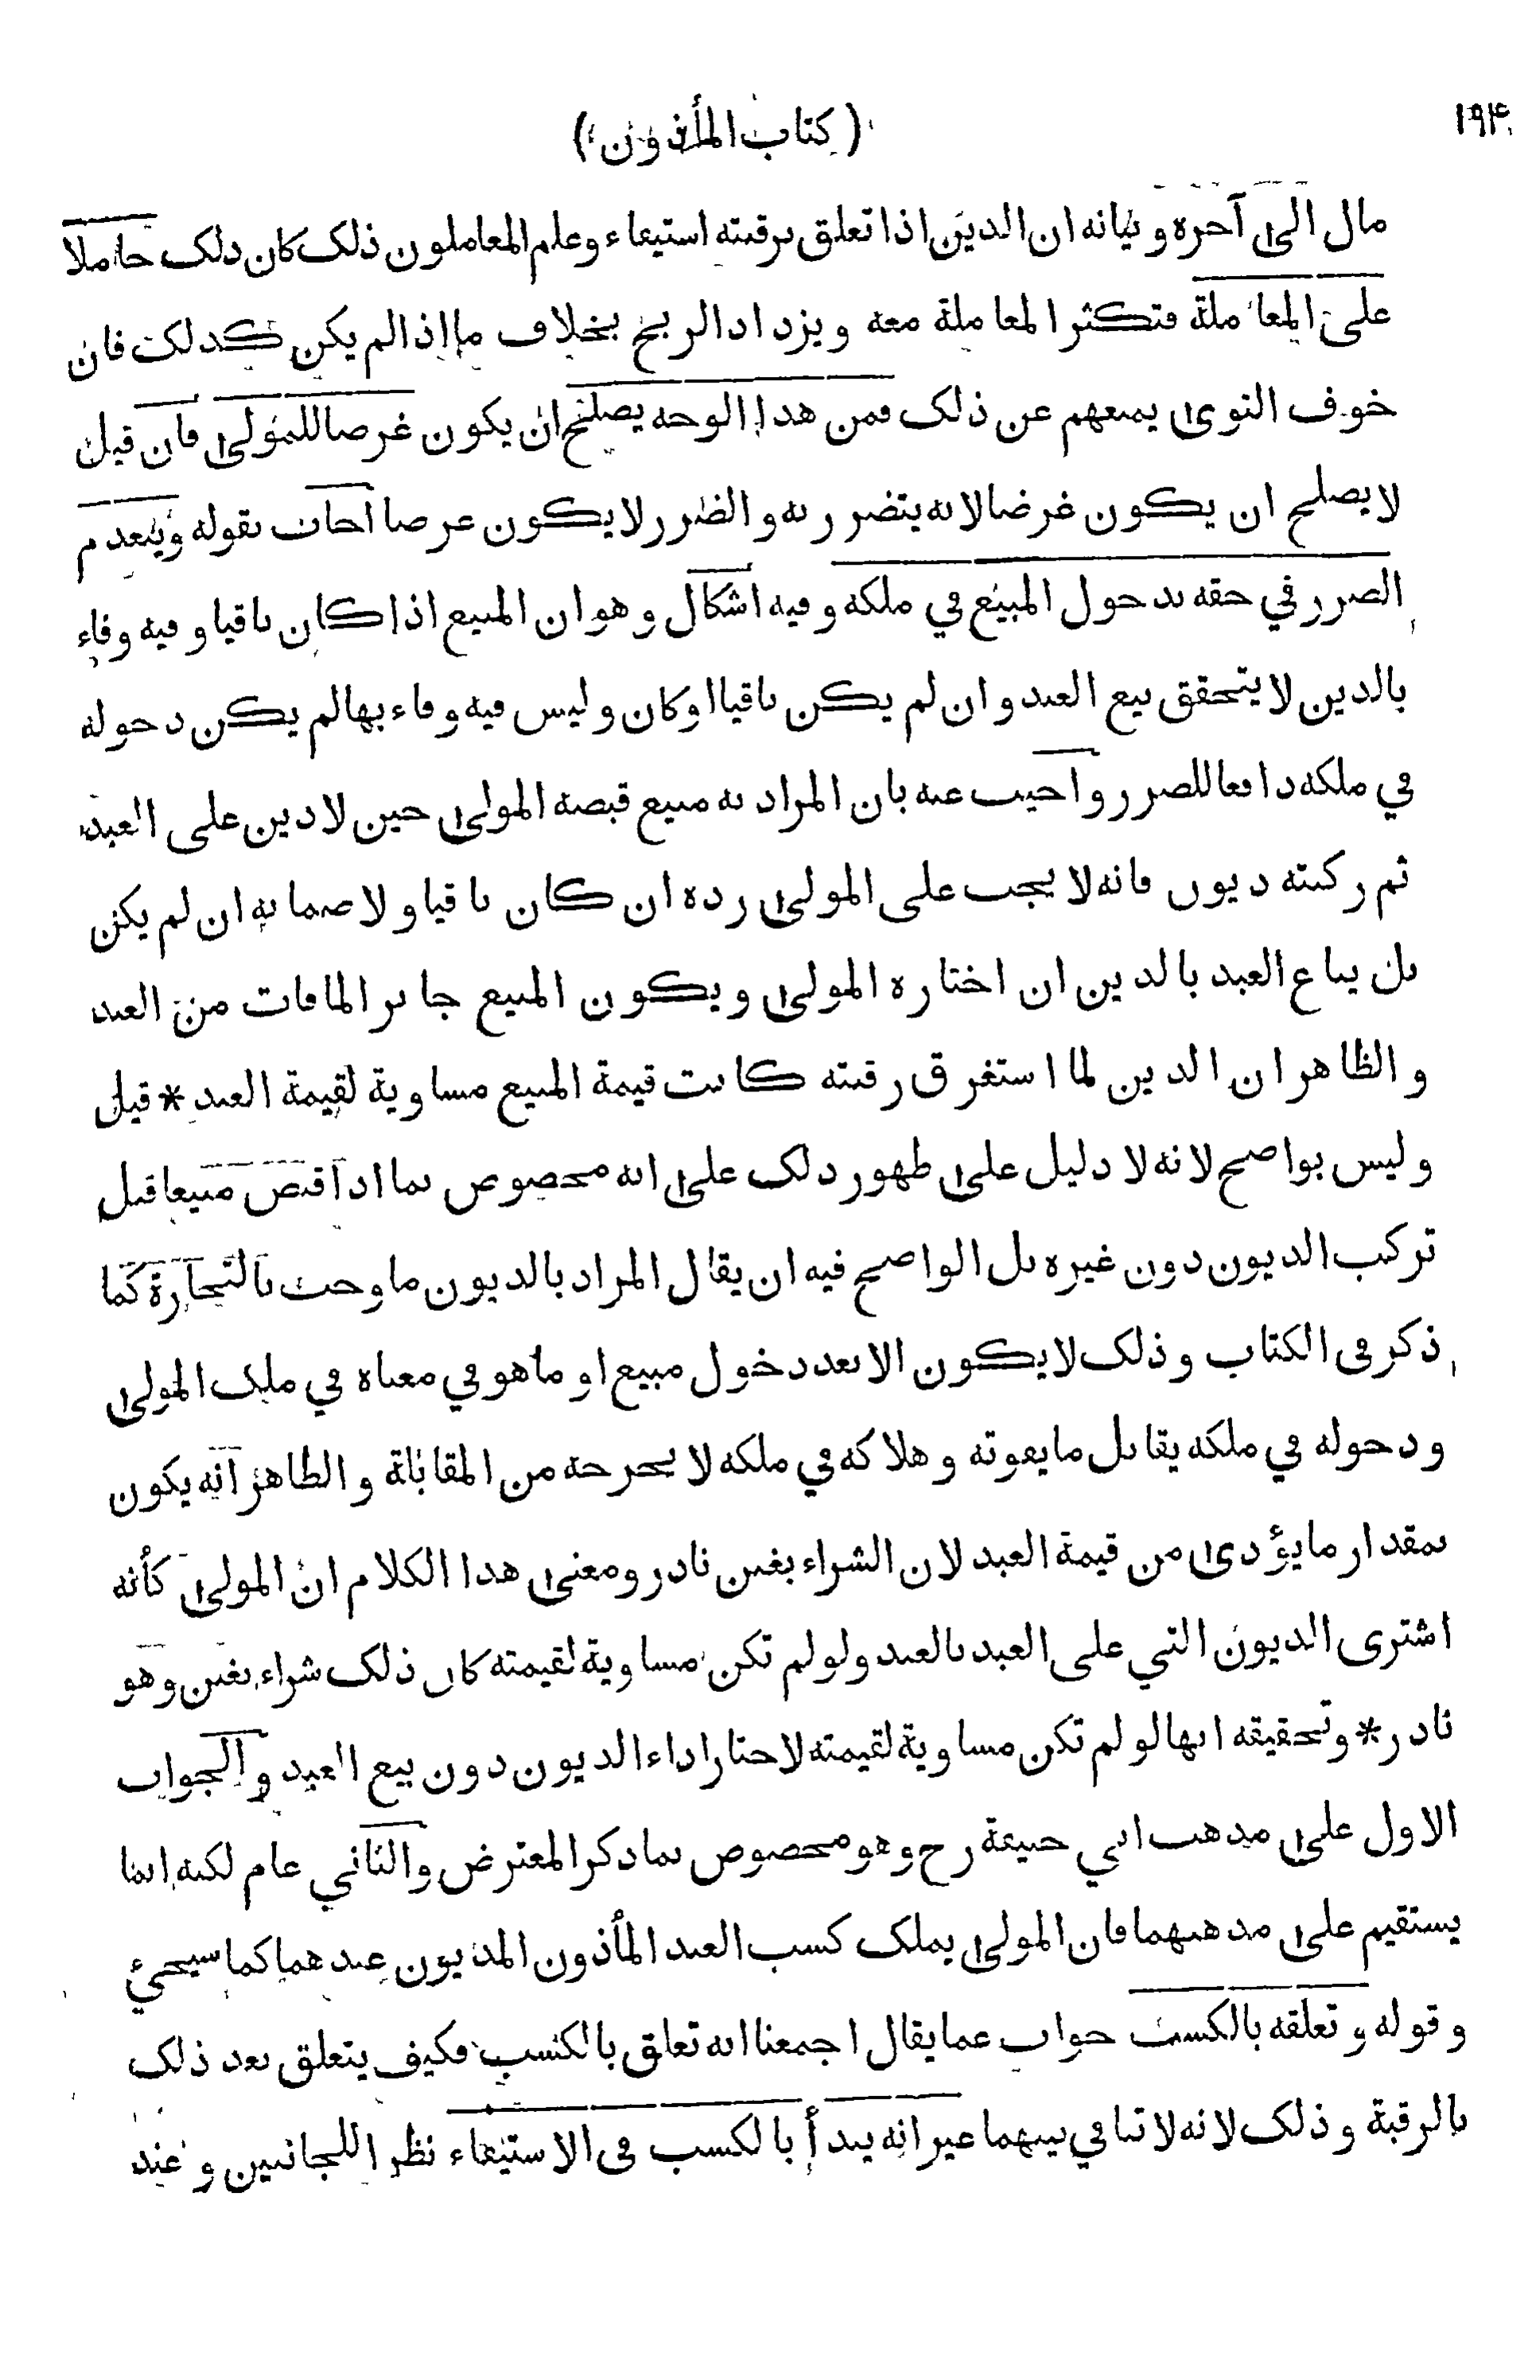 ١٩٤
( كتاب المأذون )
مال الى آخره وبيانه ان الدين اذا تعلق برقبته استيفاء وعلم المعاملون ذلك كان ذلك حاملا
على المعاملة فتكثر المعاملة معه ويزداد الربح بخلاف ما اذا لم يكن كذلك فان
خوف التوى يمنعهم عن ذلك فمن هذا الوجه يصلح ان يكون غرضا للمولى فان قيل
لا يصلح ان يكون غرضا لانه يتضرر به والضرر لا يكون غرضا اجاب بقوله وينعدم
الضرر في حقه بدخول المبيع في ملكه وفيه اشكال وهو ان المبيع اذا كان باقيا وفيه وفاء
بالدين لا يتحقق بيع العبد وان لم يكن باقيا او كان وليس فيه وفاء بها لم يكن دخوله
في ملكه دافعا للضرر واجيب عنه بان المراد به مبيع قبضه المولى حين لا دين على العبد
ثم ركبته ديون فانه لا يجب على المولى رده ان كان باقيا ولا ضمانه ان لم يكن
بل يباع العبد بالدين ان اختاره المولى ويكون المبيع جابرا لما فات من العبد
والظاهر ان الدين لما استغرق رقبته كانت قيمة المبيع مساوية لقيمة العبد * قيل
وليس بواضح لانه لا دليل على ظهور ذلك على انه مخصوص بما اذا قبض مبيعا قبل
تركب الديون دون غيره بل الواضح فيه ان يقال المراد بالديون ما وجبت بالتجارة كما
ذكر في الكتاب وذلك لا يكون الا بعد دخول مبيع او ما هو في معناه في ملك المولى
ودخوله في ملكه يقابل ما يفوته وهلاكه في ملكه لا يخرجه من المقابلة والظاهر انه يكون
بمقدار ما يؤدى من قيمة العبد لان الشراء بغبن نادر ومعنى هذا الكلام ان المولى كأنه
اشترى الديون التي على العبد بالعبد ولو لم تكن مساوية لقيمته كان ذلك شراء بغبن وهو
نادر * وتحقيقه انها لو لم تكن مساوية لقيمته لاختار اداء الديون دون بيع العبد والجواب
الاول على مذهب ابي حنيفة رح وهو مخصوص بما ذكر المعترض والثاني عام لكنه انما
يستقيم على مذهبهما فان المولى يملك كسب العبد المأذون المديون عندهما كما سيجئ
وقوله وتعلقه بالكسب جواب عما يقال اجمعنا انه تعلق بالكسب فكيف يتعلق بعد ذلك
بالرقبة وذلك لانه لا تنافي بينهما غير انه يبدأ بالكسب في الاستيفاء نظرا للجانبين وعند